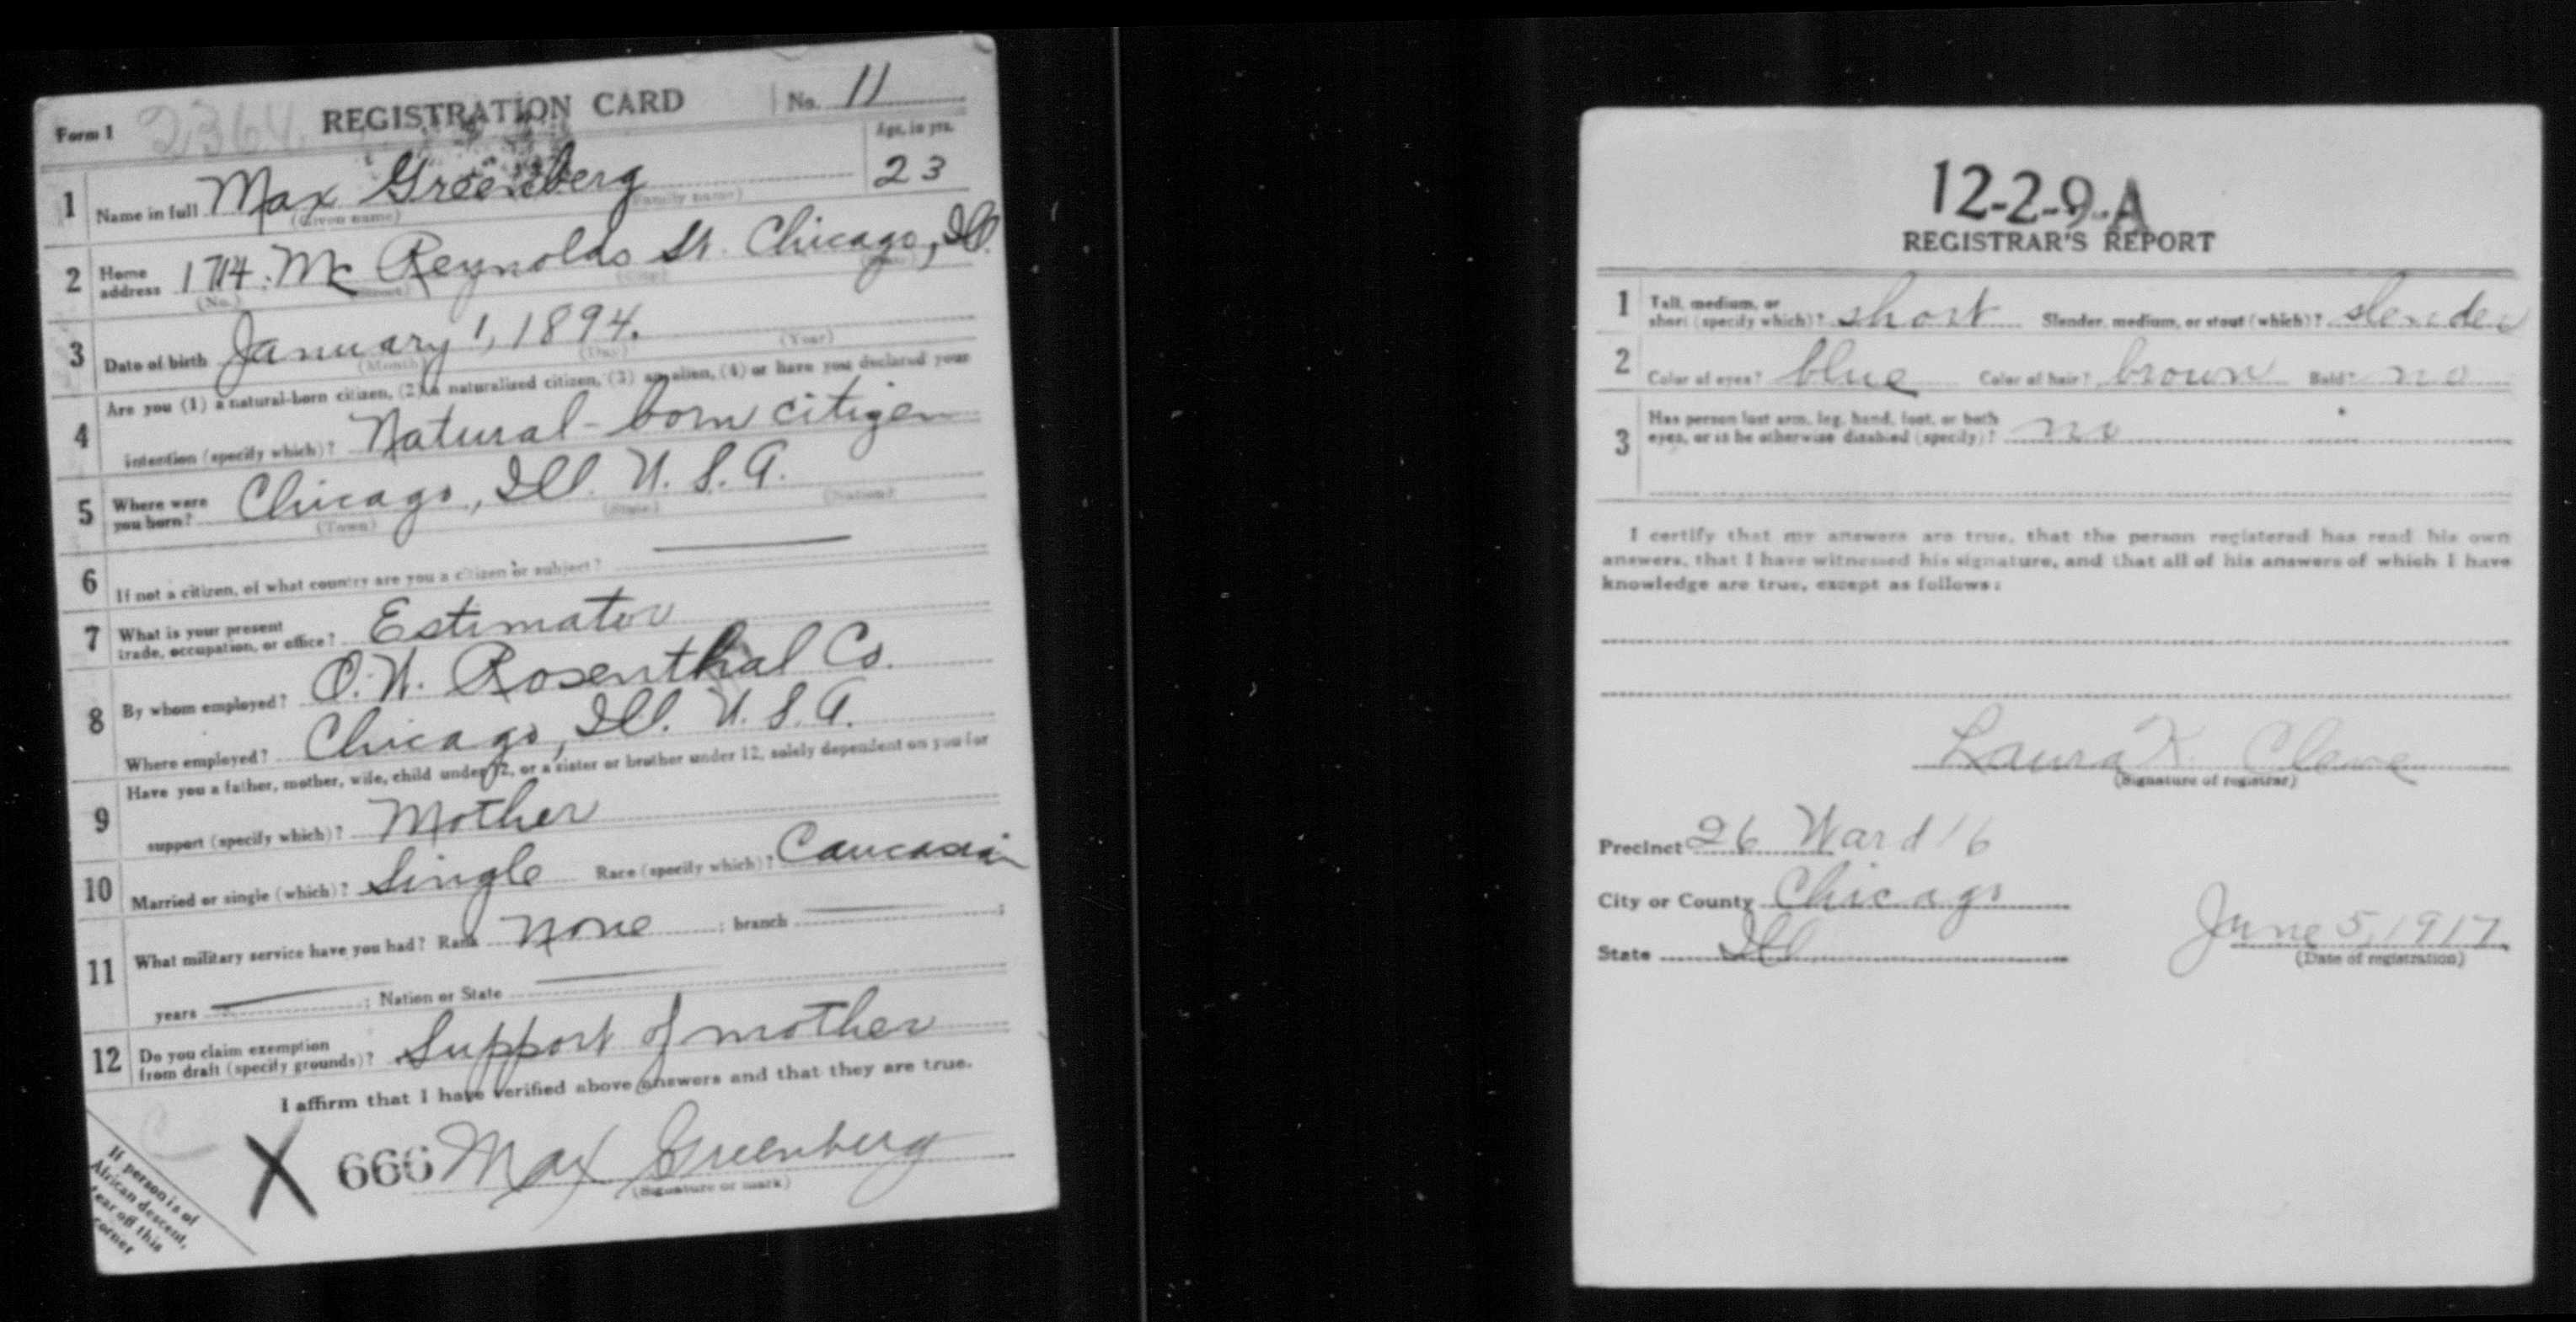 Form 1 2364 REGISTRATION CARD No. 11
Age, in yrs.
1 Name in full Max Greenberg 23
(Given name) (Family name)
2 Home address 1714 Mc Reynolds St. Chicago, Ill.
(No.) (Street) (City) (State)
3 Date of birth January 1, 1894.
(Month) (Day) (Year)
4 Are you (1) a natural-born citizen, (2) a naturalized citizen, (3) an alien, (4) or have you declared your
intention (specify which)? Natural-born citizen
5 Where were you born? Chicago, Ill. U. S. A.
(Town) (State) (Nation)
6 If not a citizen, of what country are you a citizen or subject?
7 What is your present trade, occupation, or office? Estimator
8 By whom employed? O. W. Rosenthal Co.
Where employed? Chicago, Ill. U. S. A.
9 Have you a father, mother, wife, child under 12, or a sister or brother under 12, solely dependent on you for
support (specify which)? Mother
10 Married or single (which)? Single Race (specify which)? Caucasian
11 What military service have you had? Rank none ; branch ;
years ; Nation or State
12 Do you claim exemption from draft (specify grounds)? Support of mother
I affirm that I have verified above answers and that they are true.
X 666 Max Greenberg
(Signature or mark)
If person is of
African descent,
tear off this
corner
12-2-9-A
REGISTRAR'S REPORT
1 Tall, medium, or short (specify which)? short Slender, medium, or stout (which)? slender
2 Color of eyes? blue Color of hair? brown Bald? no
3 Has person lost arm, leg, hand, foot, or both
eyes, or is he otherwise disabled (specify)? no
I certify that my answers are true, that the person registered has read his own
answers, that I have witnessed his signature, and that all of his answers of which I have
knowledge are true, except as follows:
Laura K.
(Signature of registrar)
Precinct 26 Ward 16
City or County Chicago
State Ill
June 5, 1917
(Date of registration)